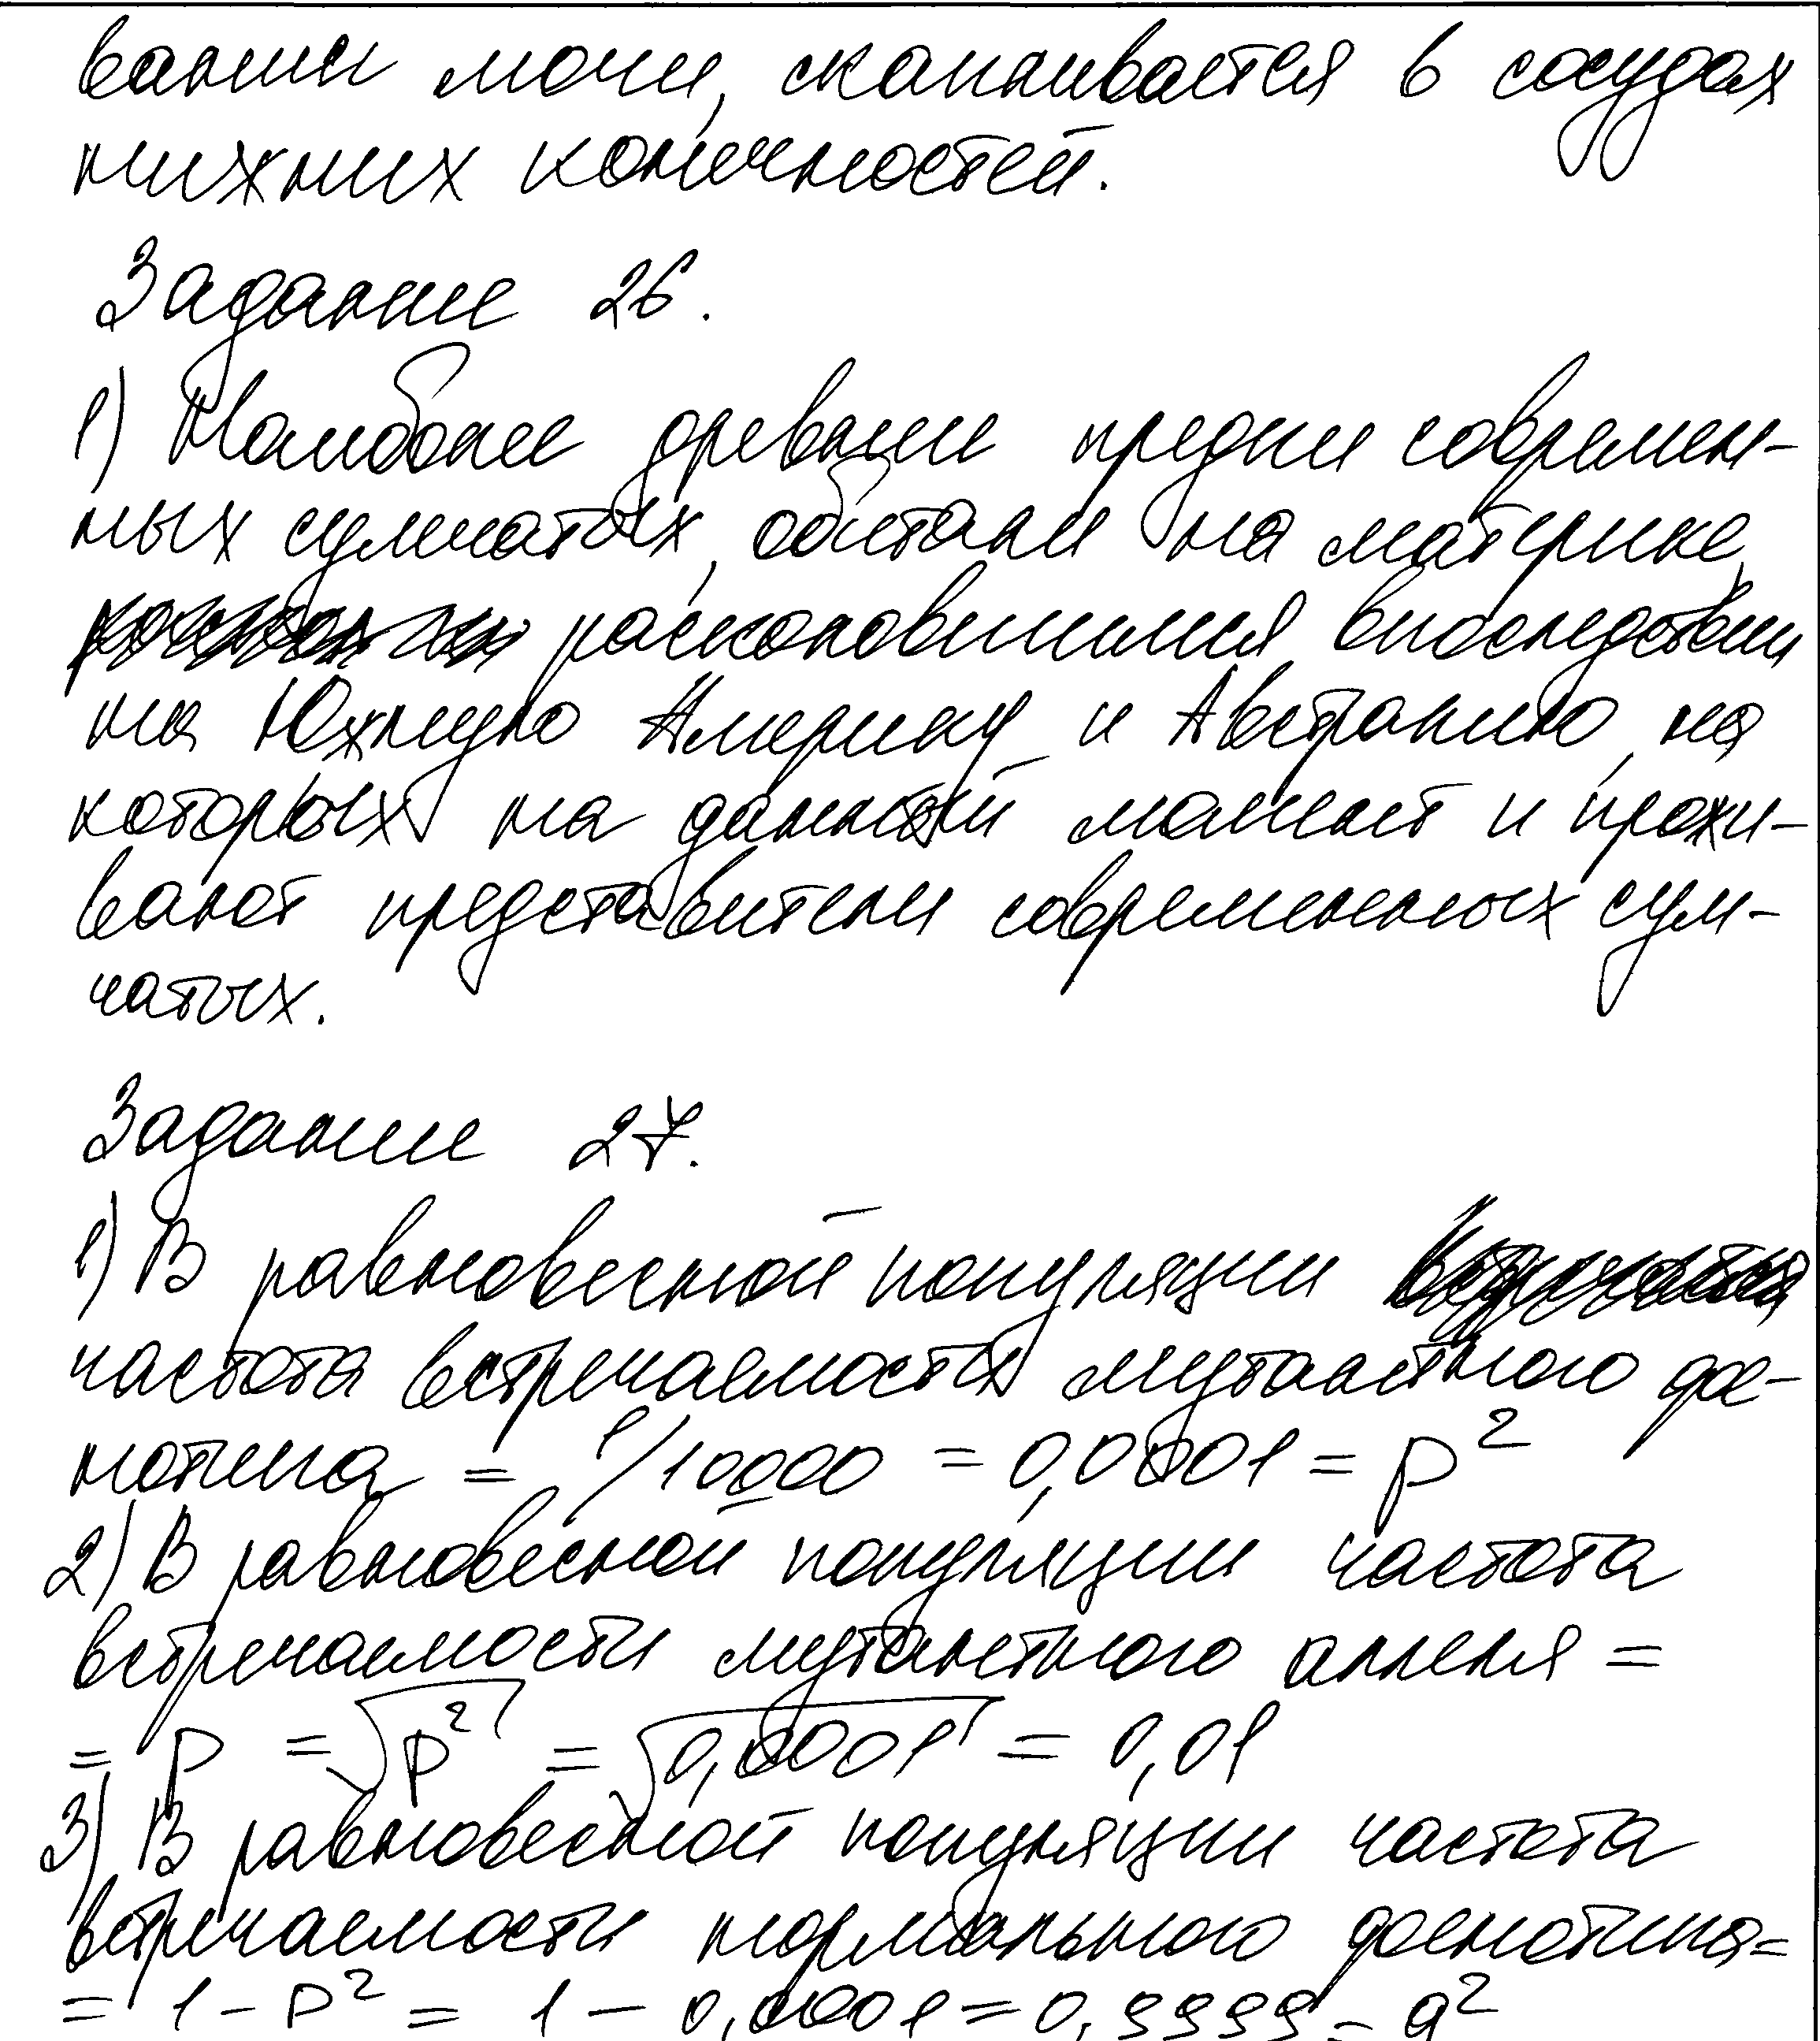 вании мочи, скапливается в сосудах
нижних конечностей.
Задание 26.
1) Наиболее древние предки современ-
ных сумчатых, обитали на материке,
расколовшимся впоследствии
на Южную Америку и Австралию, на
которых на данный момент и прожи-
вают представители современных сум-
чатых.
Задание 27.
1) В равновесной популяции
частота встречаемости мутантного фе-
нотипа = 1/10000 = 0,0001 = p²
2) В равновесной популяции частота
встречаемости мутантного аллеля =
= p = √p² = √0,0001 = 0,01
3) В равновесной популяции частота
встречаемости нормального фенотипа =
= 1 - p² = 1 - 0,0001 = 0,9999 = q²